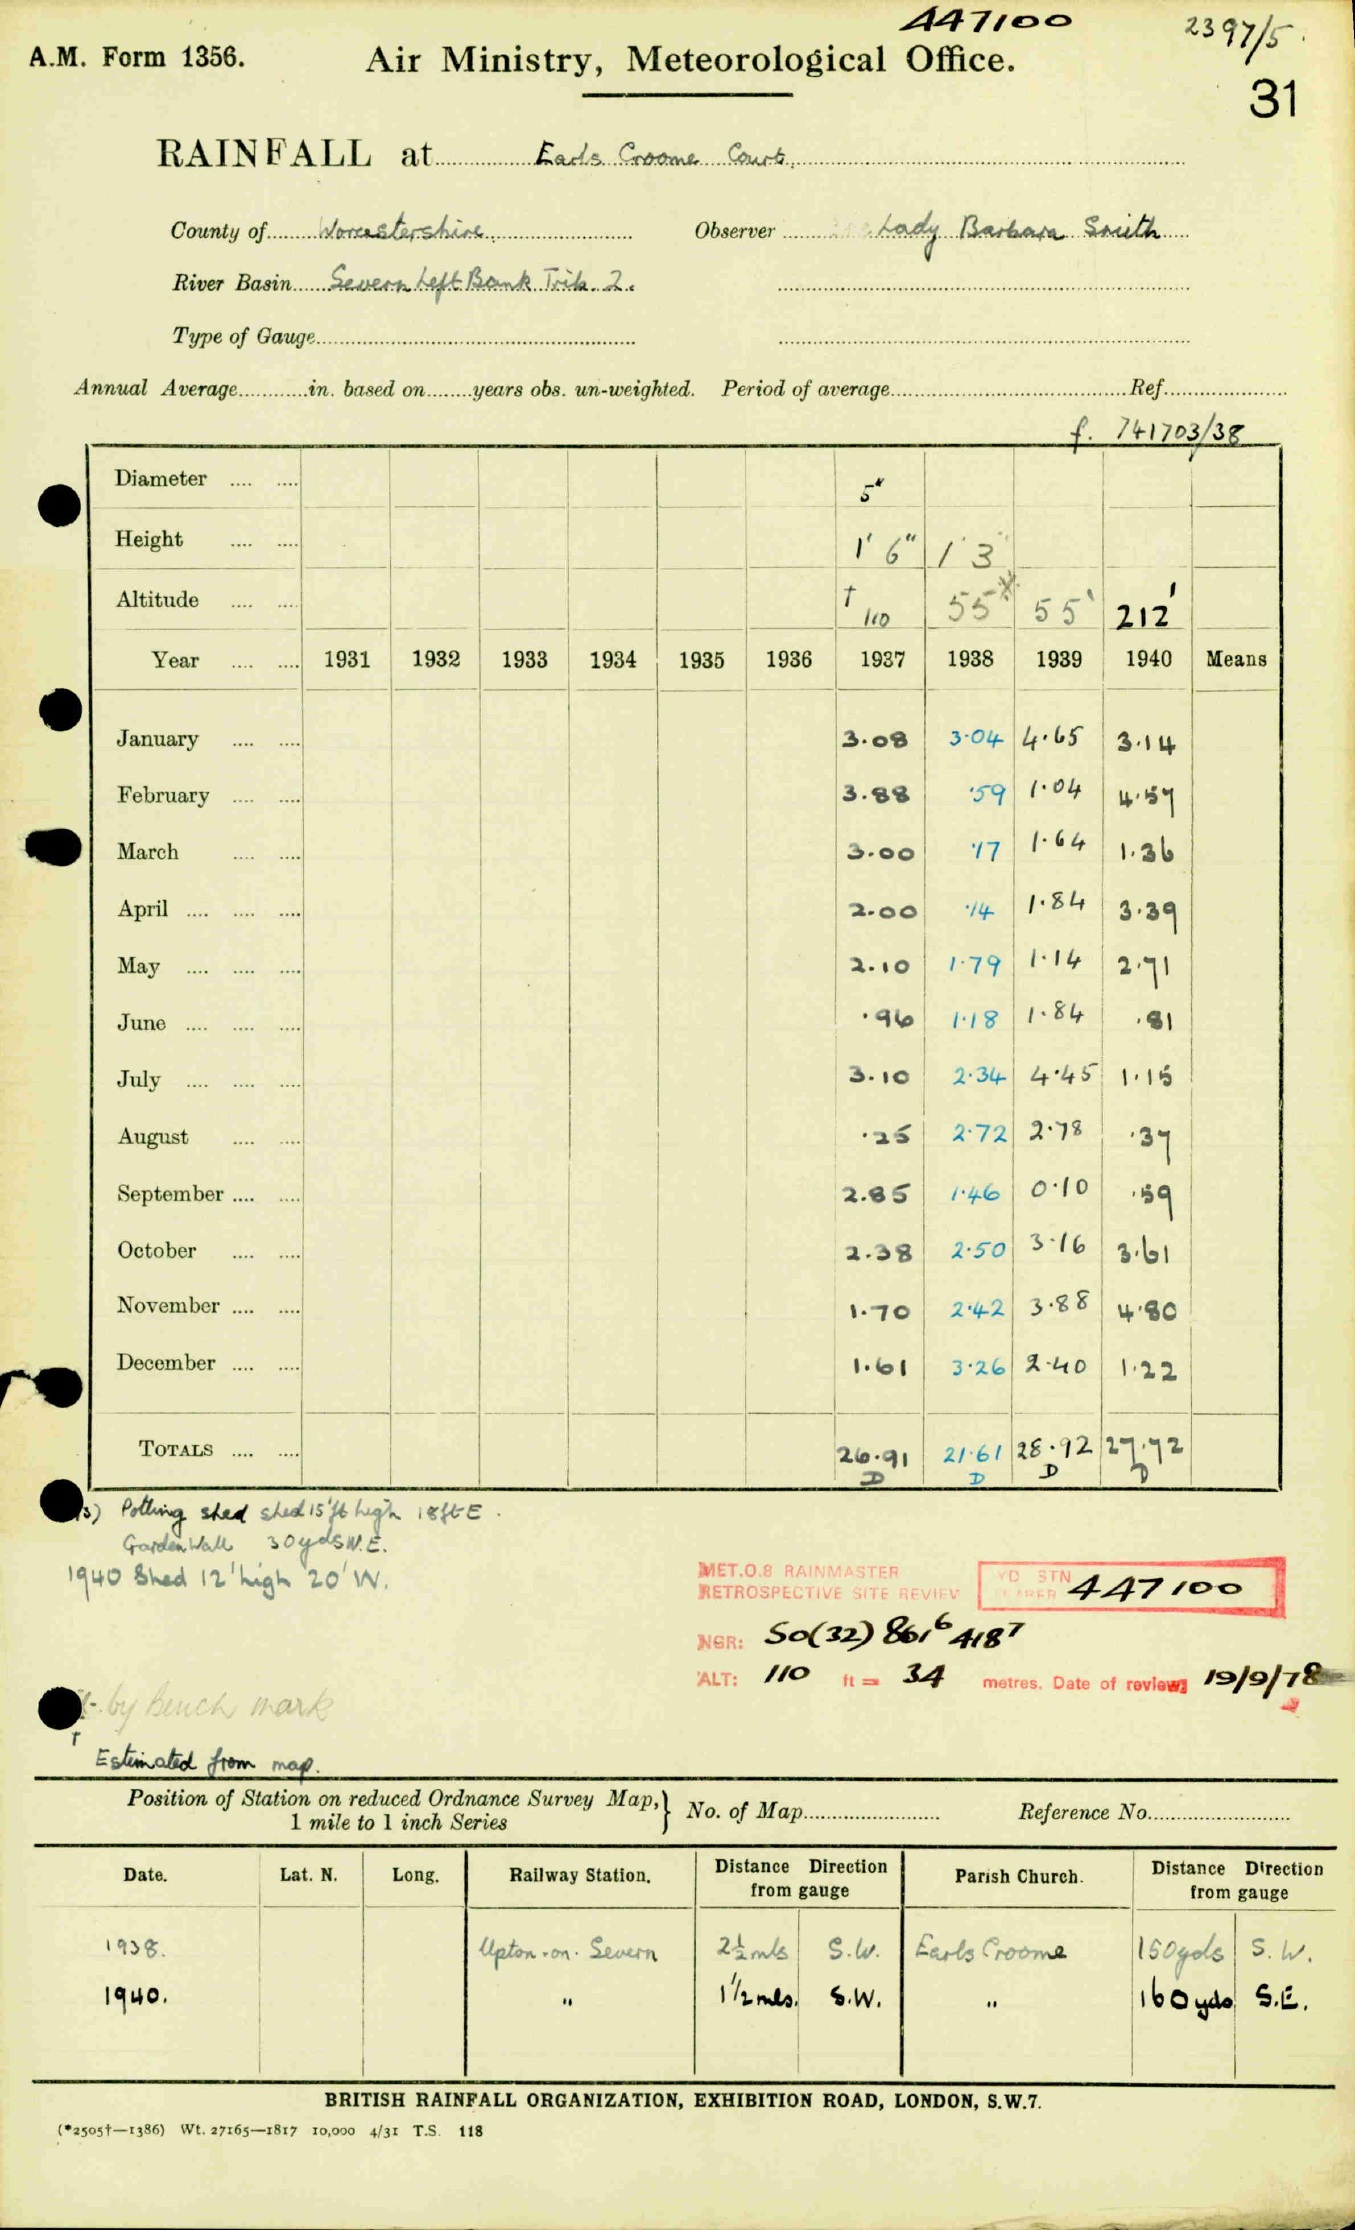 447100
2397/5.
A.M. Form 1356.
Air Ministry, Meteorological Office.
31
RAINFALL at Earls Croome Court.
County of Worcestershire. Observer Lady Barbara Smith
River Basin Severn Left Bank Trib. 2.
Type of Gauge
Annual Average in. based on years obs. un-weighted. Period of average Ref.
f. 741703/38
Diameter 5"
Height 1' 6" 1' 3"
Altitude † 110 55* 55' 212'
Year 1931 1932 1933 1934 1935 1936 1937 1938 1939 1940 Means
January 3.08 3.04 4.65 3.14
February 3.88 .59 1.04 4.57
March 3.00 .17 1.64 1.36
April 2.00 .14 1.84 3.39
May 2.10 1.79 1.14 2.71
June .96 1.18 1.84 .81
July 3.10 2.34 4.45 1.15
August .25 2.72 2.78 .37
September 2.85 1.46 0.10 .59
October 2.38 2.50 3.16 3.61
November 1.70 2.42 3.88 4.80
December 1.61 3.26 2.40 1.22
TOTALS 26.91 21.61 28.92 27.72
D D D D
3) Potting shed shed 15 ft high 18ft E.
Garden Wall 30yds N.E.
1940 Shed 12' high 20' W.
MET.O.8 RAINMASTER
RETROSPECTIVE SITE REVIEW
STN 447100
NGR: SO(32) 861⁶ 418⁷
ALT: 110 ft = 34 metres. Date of review 19/9/78
by Bench mark
† Estimated from map.
Position of Station on reduced Ordnance Survey Map, } No. of Map Reference No.
1 mile to 1 inch Series
Date. Lat. N. Long. Railway Station. Distance Direction from gauge Parish Church. Distance Direction from gauge
1938. Upton-on-Severn 2½ mls S.W. Earls Croome 150yds S.W.
1940. " 1½ mls. S.W. " 160 yds S.E.
BRITISH RAINFALL ORGANIZATION, EXHIBITION ROAD, LONDON, S.W.7.
(*2505†—1386) Wt. 27165—1817 10,000 4/31 T.S. 118